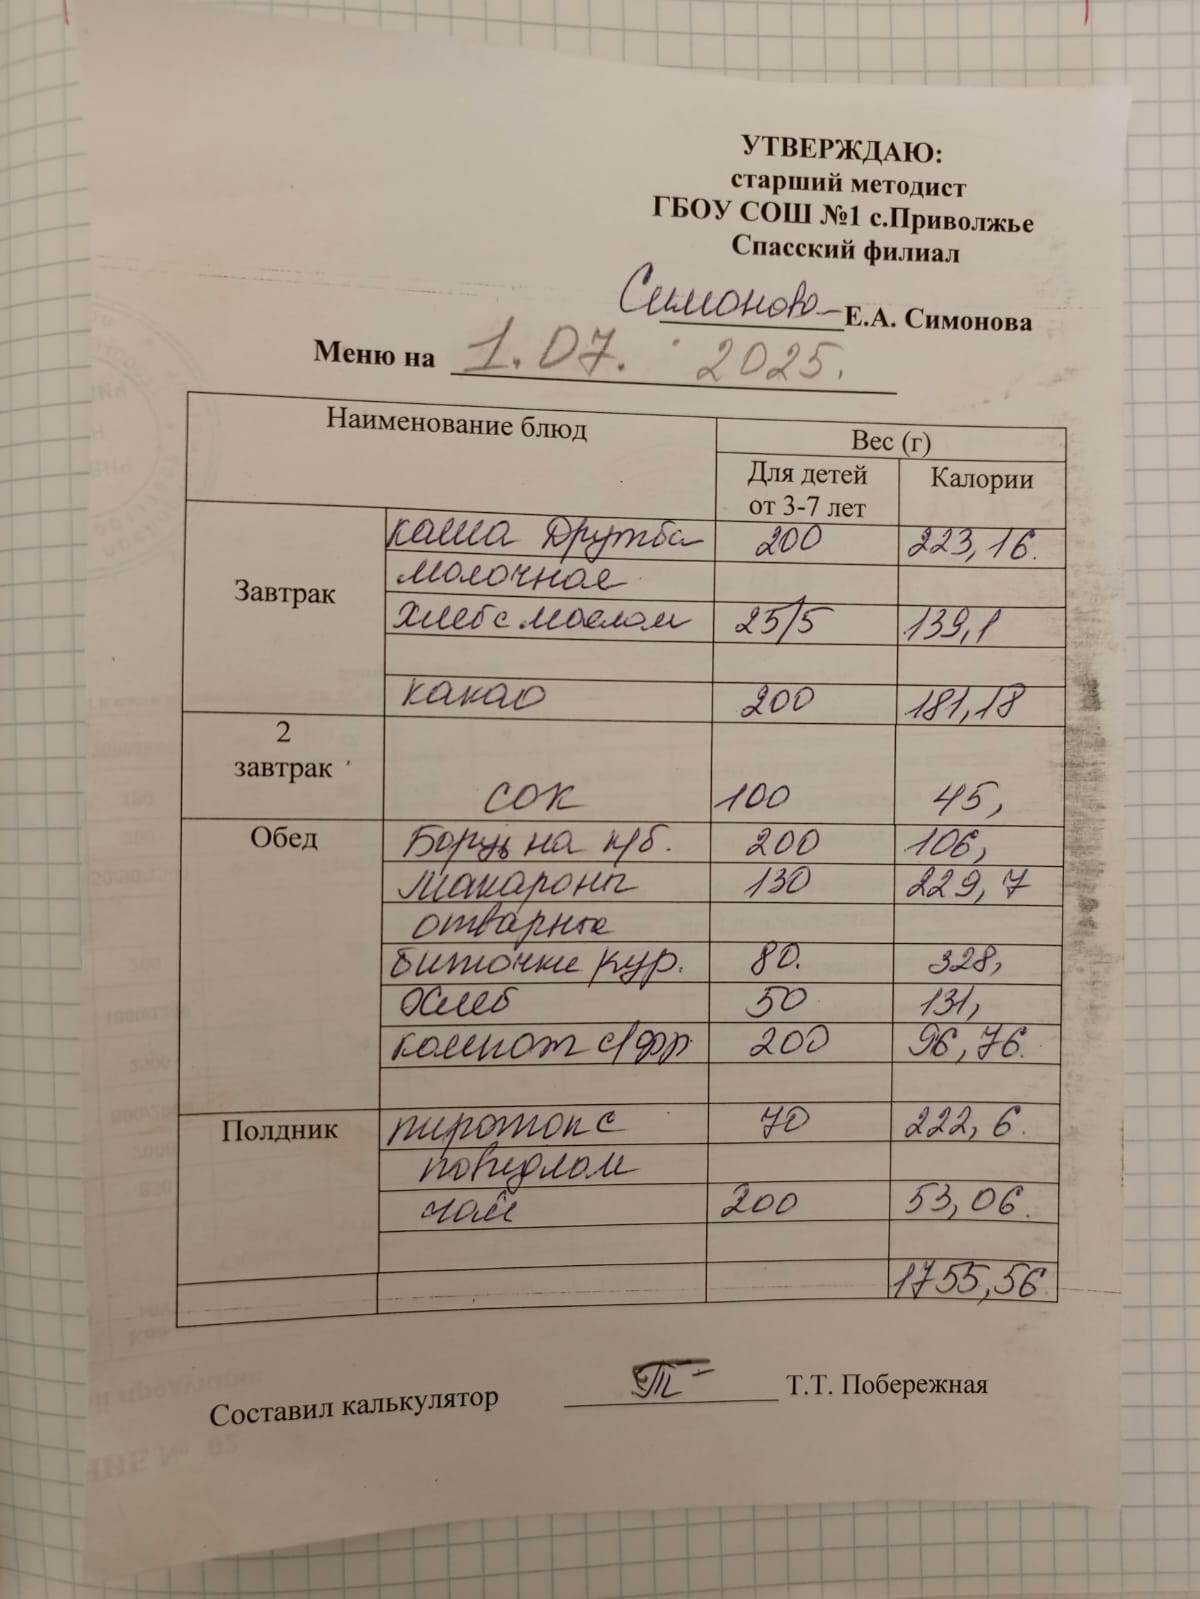 УТВЕРЖДАЮ:
старший методист
ГБОУ СОШ №1 с.Приволжье
Спасский филиал
Симонова Е.А. Симонова
Меню на 1.07. 2025.
Наименование блюд Вес (г)
Для детей от 3-7 лет Калории
Завтрак каша Дружба 200 223,16.
молочная
Хлеб с маслом 25/5 139,1
какао 200 181,18
2 завтрак сок 100 45,
Обед Борщ на к/б. 200 106,
Макароны 130 229,7
отварные
биточки кур. 80. 328,
Хлеб 50 131,
компот с/фр 200 96,76.
Полдник пирожок с 70 222,6.
повидлом
чай 200 53,06.
1755,56
Составил калькулятор Т.Т. Побережная